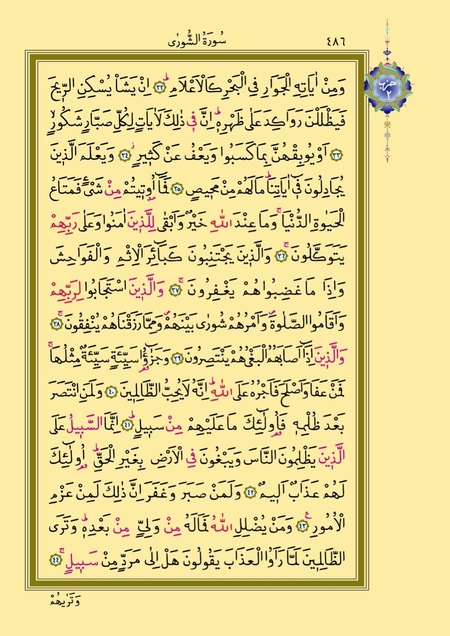 سُورَةُ الشُّورٰى ٤٨٦
وَمِنْ اٰيَاتِهِ الْجَوَارِ فِي الْبَحْرِ كَالْاَعْلَامِۜ ﴿٣٢﴾ اِنْ يَشَأْ يُسْكِنِ الرّ۪يحَ
فَيَظْلَلْنَ رَوَاكِدَ عَلٰى ظَهْرِه۪ۜ اِنَّ ف۪ي ذٰلِكَ لَاٰيَاتٍ لِكُلِّ صَبَّارٍ شَكُورٍۙ
﴿٣٣﴾ اَوْ يُوبِقْهُنَّ بِمَا كَسَبُوا وَيَعْفُ عَنْ كَث۪يرٍۘ ﴿٣٤﴾ وَيَعْلَمَ الَّذ۪ينَ
يُجَادِلُونَ ف۪ٓي اٰيَاتِنَاۜ مَا لَهُمْ مِنْ مَح۪يصٍ ﴿٣٥﴾ فَمَٓا اُو۫ت۪يتُمْ مِنْ شَيْءٍ فَمَتَاعُ
الْحَيٰوةِ الدُّنْيَاۚ وَمَا عِنْدَ اللّٰهِ خَيْرٌ وَاَبْقٰى لِلَّذ۪ينَ اٰمَنُوا وَعَلٰى رَبِّهِمْ
يَتَوَكَّلُونَۚ ﴿٣٦﴾ وَالَّذ۪ينَ يَجْتَنِبُونَ كَبَٓائِرَ الْاِثْمِ وَالْفَوَاحِشَ
وَاِذَا مَا غَضِبُوا هُمْ يَغْفِرُونَۚ ﴿٣٧﴾ وَالَّذ۪ينَ اسْتَجَابُوا لِرَبِّهِمْ
وَاَقَامُوا الصَّلٰوةَۖ وَاَمْرُهُمْ شُورٰى بَيْنَهُمْۖ وَمِمَّا رَزَقْنَاهُمْ يُنْفِقُونَۚ ﴿٣٨﴾
وَالَّذ۪ينَ اِذَٓا اَصَابَهُمُ الْبَغْيُ هُمْ يَنْتَصِرُونَ ﴿٣٩﴾ وَجَزٰٓؤُ۬ا سَيِّئَةٍ سَيِّئَةٌ مِثْلُهَاۚ
فَمَنْ عَفَا وَاَصْلَحَ فَاَجْرُهُ عَلَى اللّٰهِۜ اِنَّهُ لَا يُحِبُّ الظَّالِم۪ينَ ﴿٤٠﴾ وَلَمَنِ انْتَصَرَ
بَعْدَ ظُلْمِه۪ فَاُو۬لٰٓئِكَ مَا عَلَيْهِمْ مِنْ سَب۪يلٍۜ ﴿٤١﴾ اِنَّمَا السَّب۪يلُ عَلَى
الَّذ۪ينَ يَظْلِمُونَ النَّاسَ وَيَبْغُونَ فِي الْاَرْضِ بِغَيْرِ الْحَقِّۜ اُو۬لٰٓئِكَ
لَهُمْ عَذَابٌ اَل۪يمٌ ﴿٤٢﴾ وَلَمَنْ صَبَرَ وَغَفَرَ اِنَّ ذٰلِكَ لَمِنْ عَزْمِ
الْاُمُورِ۟ ﴿٤٣﴾ وَمَنْ يُضْلِلِ اللّٰهُ فَمَا لَهُ مِنْ وَلِيٍّ مِنْ بَعْدِه۪ۜ وَتَرَى
الظَّالِم۪ينَ لَمَّا رَاَوُا الْعَذَابَ يَقُولُونَ هَلْ اِلٰى مَرَدٍّ مِنْ سَب۪يلٍۚ ﴿٤٤﴾
وَتَرٰيهُمْ